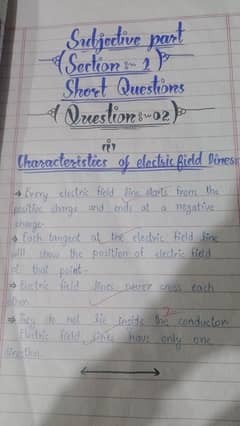 Subjective part
Section:- 1
Short Questions
Question:-02
(i)
Characteristics of electric field lines
→ Every electric field line starts from the
positive charge and ends at a negative
charge.
→ Each tangent at the electric field line
will show the position of electric field
at that point.
→ Electric field lines never cross each
other.
→ They do not lie inside the conductor
Electric field lines have only one
direction.